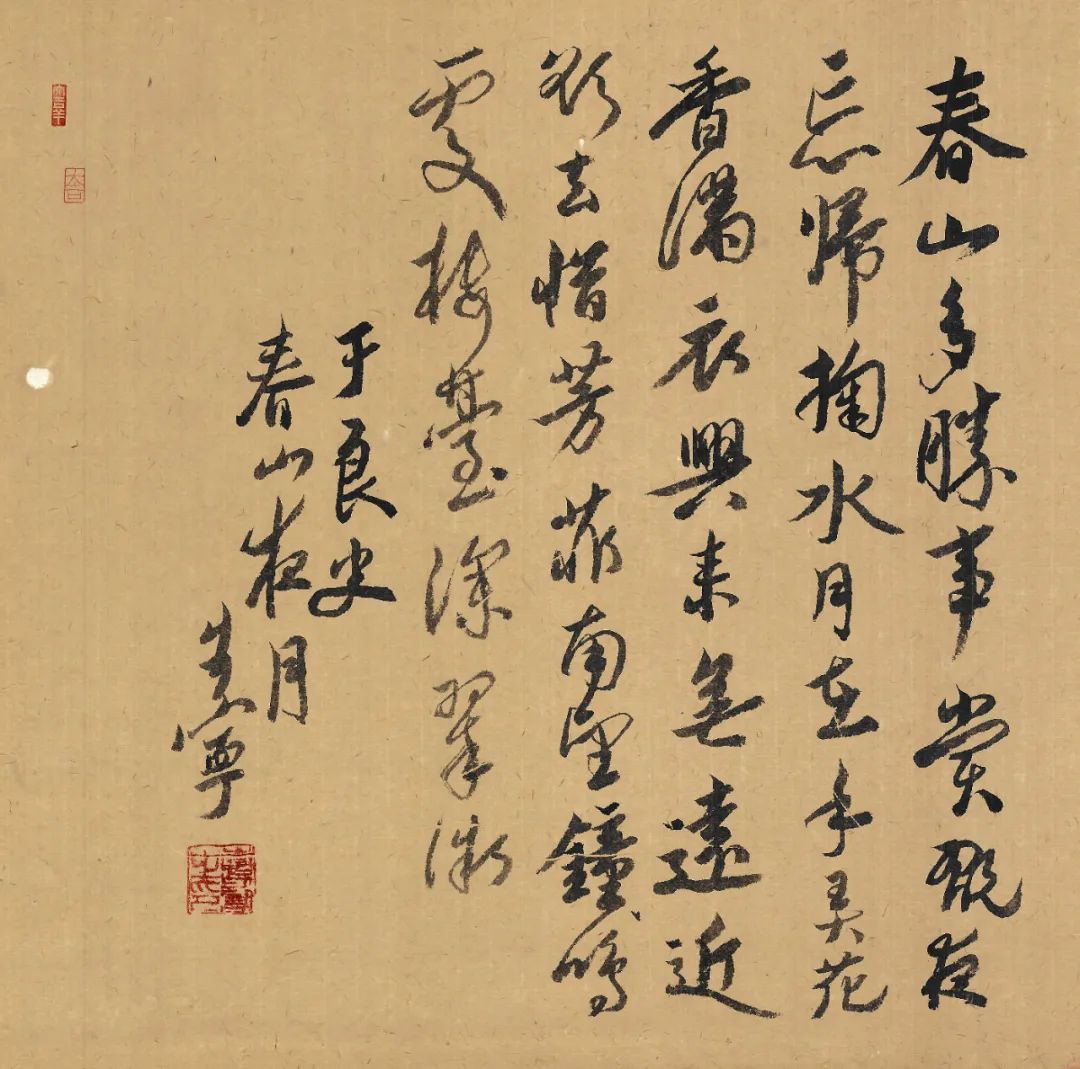 春山多勝事賞翫夜
忘歸掬水月在手弄花
香滿衣興來無遠近
欲去惜芳菲南望鐘鳴
處樓臺深翠微
于良史
春山夜月
朱寧